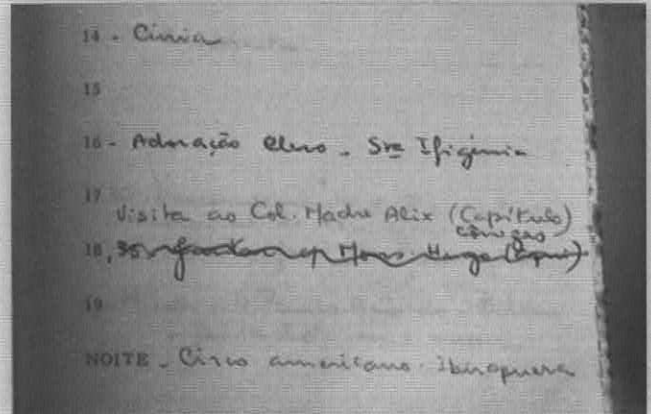 14 - Cúria
15
16 - Adoração Clero - Sta Ifigênia
17
Visita ao Col. Madre Alix (Capítulo)
Cônegas
18,30
19
NOITE - Circo americano - Ibirapuera